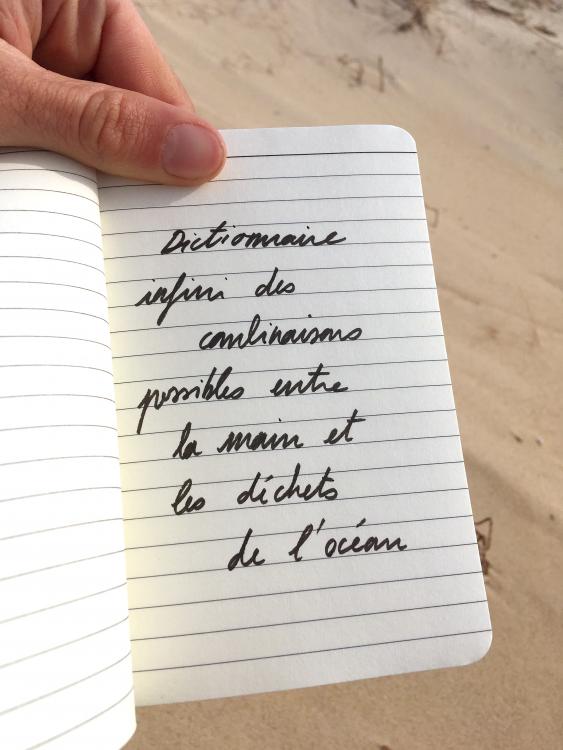 Dictionnaire
infini des
combinaisons
possibles entre
la main et
les déchets
de l'océan